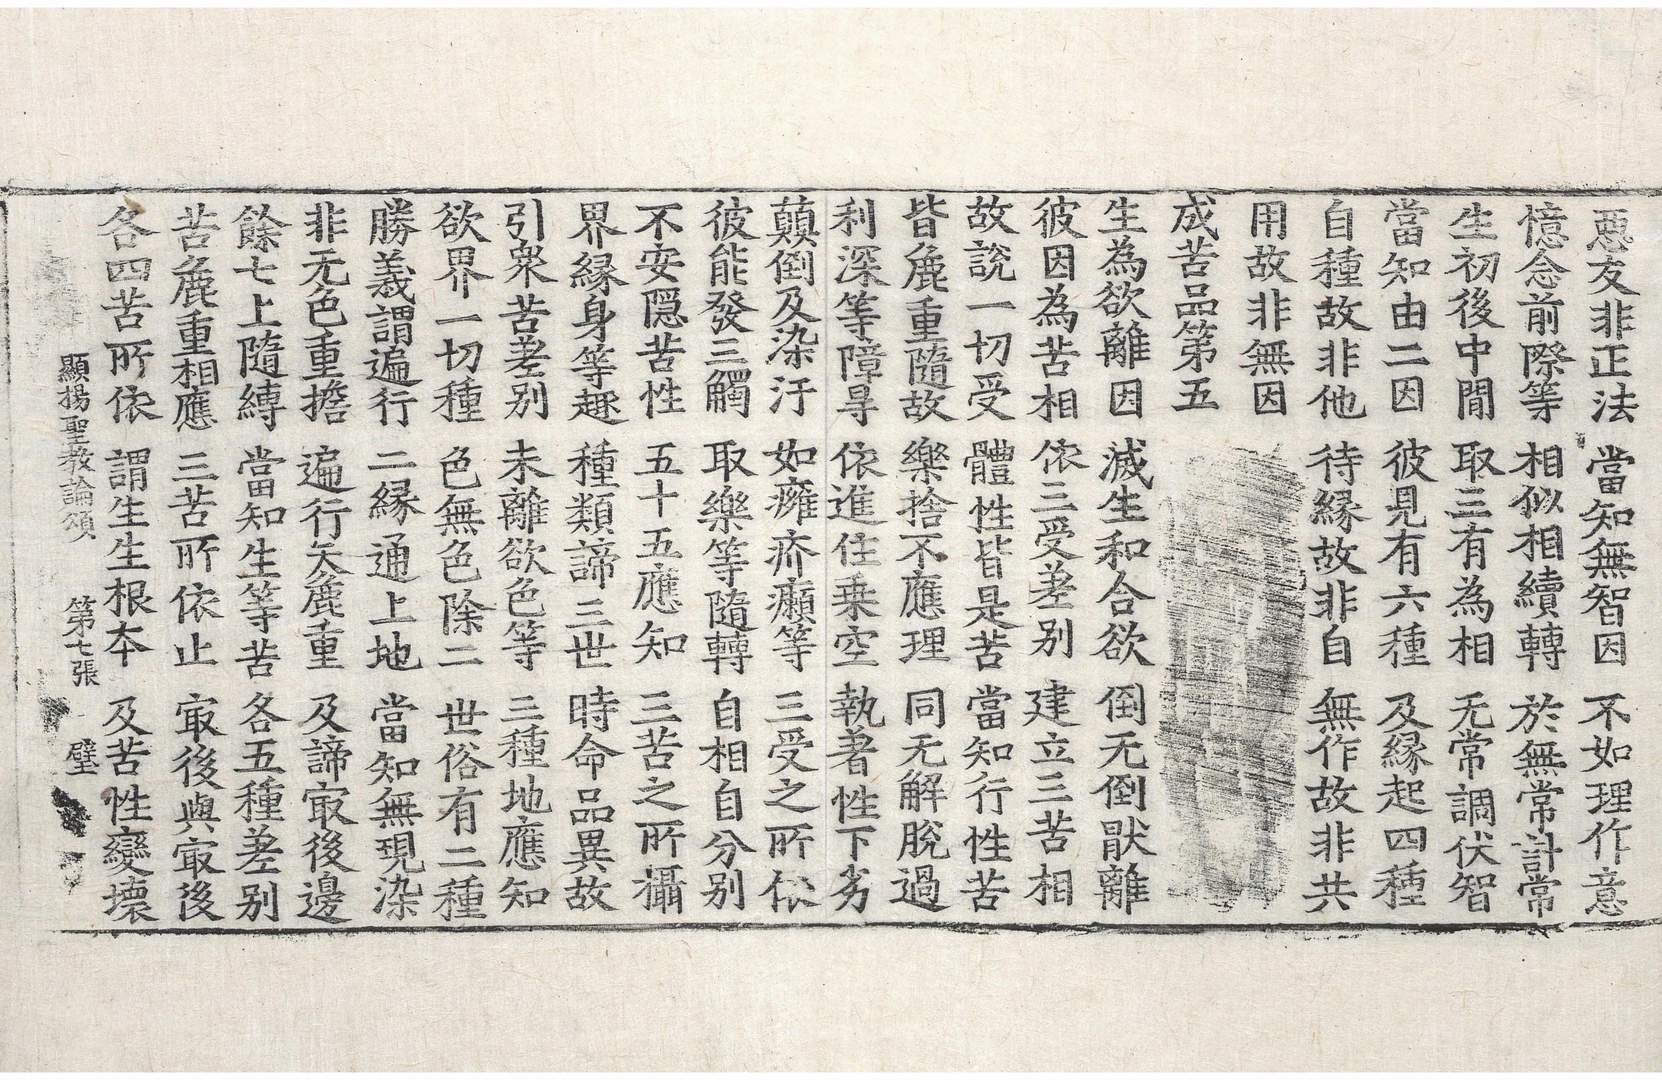 惡友非正法 當知無智因 不如理作意
憶念前際等 相似相續轉 於無常計常
生初後中間 取三有為相 无常調伏智
當知由二因 彼見有六種 及緣起四種
自種故非他 待緣故非自 無作故非共
用故非無因
成苦品第五
生為欲離因 滅生和合欲 倒无倒猒離
彼因為苦相 依三受差别 建立三苦相
故說一切受 體性皆是苦 當知行性苦
皆麁重隨故 樂捨不應理 同无解脫過
利深等障㝵 依進住乗空 執著性下劣
顛倒及染汙 如癰疥癩等 三受之所依
彼能發三觸 取樂等隨轉 自相自分别
不安隠苦性 五十五應知 三苦之所攝
界緣身等趣 種類諦三世 時命品異故
引衆苦差别 未離欲色等 三種地應知
欲界一切種 色無色除二 世俗有二種
勝義謂遍行 二緣通上地 當知無現染
非无色重擔 遍行矢麁重 及諦冣後邊
餘七上隨縛 當知生等苦 各五種差别
苦麁重相應 三苦所依止 冣後與冣後
各四苦所依 謂生生根本 及苦性變壞
顯揚聖教論頌 第七張 璧